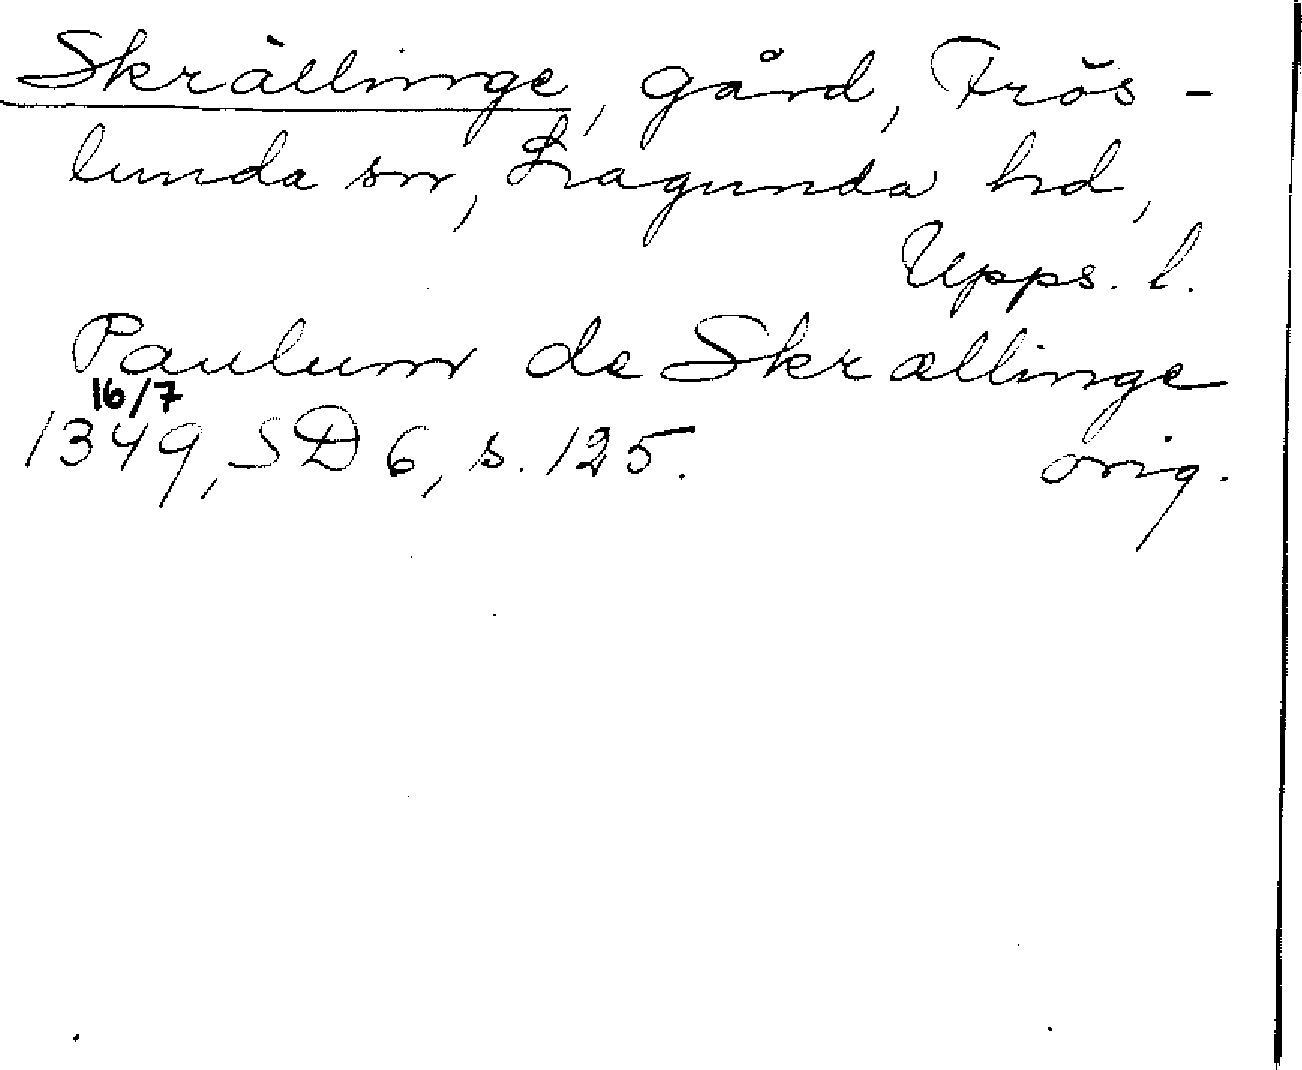 Skrällinge, gård, Frös-
lunda sn, Lagunda hd,
Upps. l.
Paulum de Skrællinge
16/7
1349, SD 6, s. 125. orig.